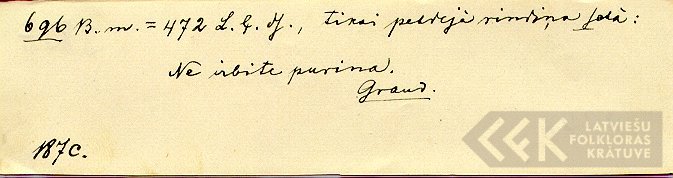 696 B. m. = 472 L. Ģ. dz., tikai pēdējā rindiņa šādā:
Ne irbīte purina.
Graud.
187c.
LATVIEŠU
FOLKLORAS
KRĀTUVE